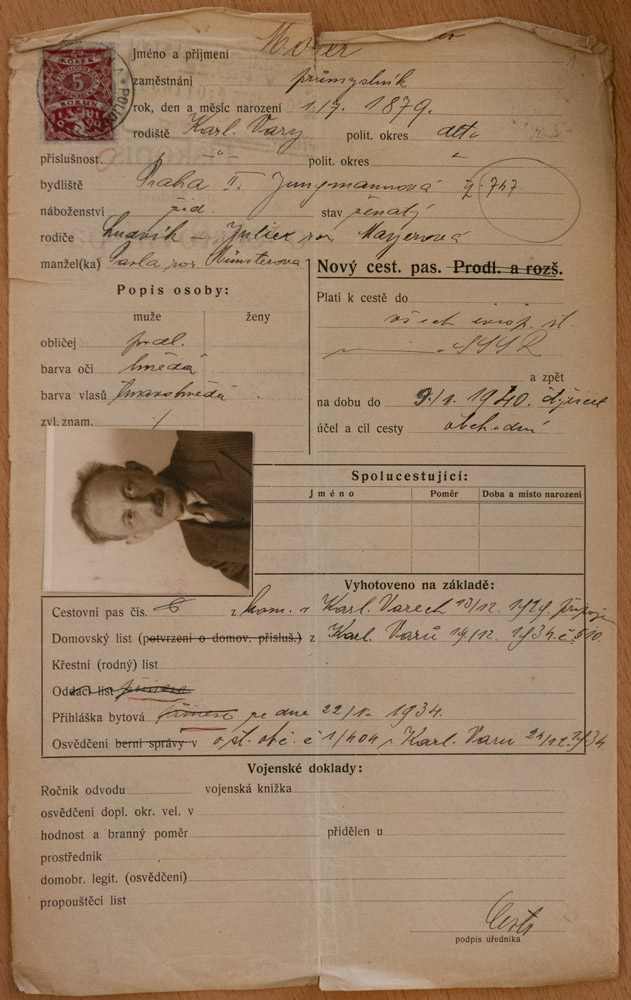 Jméno a příjmení Moser
zaměstnání průmyslník
rok, den a měsíc narození 1879.
rodiště Karl. Vary polit. okres detto
příslušnost polit. okres
bydliště Praha II. Jungmannová č. 747
náboženství žid. stav ženatý
rodiče Ludvík – roz Mayerová
manžel(ka) roz Münsterova
Popis osoby:
muže ženy
obličej podl.
barva očí hnědá
barva vlasů tmavohnědá
zvl. znam.
Nový cest. pas. Prodl. a rozš.
Platí k cestě do
všech evrop. st.
SSSR
a zpět
na dobu do 1940.
účel a cíl cesty obchodní
Spolucestující:
Jméno Poměr Doba a místo narození
Vyhotoveno na základě:
Cestovní pas čís. z hom. v Karl. Varech 13/12. 1929.
Domovský list (potvrzení o domov. přísluš.) z Karl. Varů 19/12. 1934 č. 510
Křestní (rodný) list
Oddací list
Přihláška bytová ze dne 22/1. 1934.
Osvědčení berní správy v o st. obč. č 1/404 z Karl. Varů 24/12. 1934
Vojenské doklady:
Ročník odvodu vojenská knížka
osvědčení dopl. okr. vel. v
hodnost a branný poměr přidělen u
prostředník
domobr. legit. (osvědčení)
propouštěcí list
podpis úředníka
KOLEK
5
KORUN